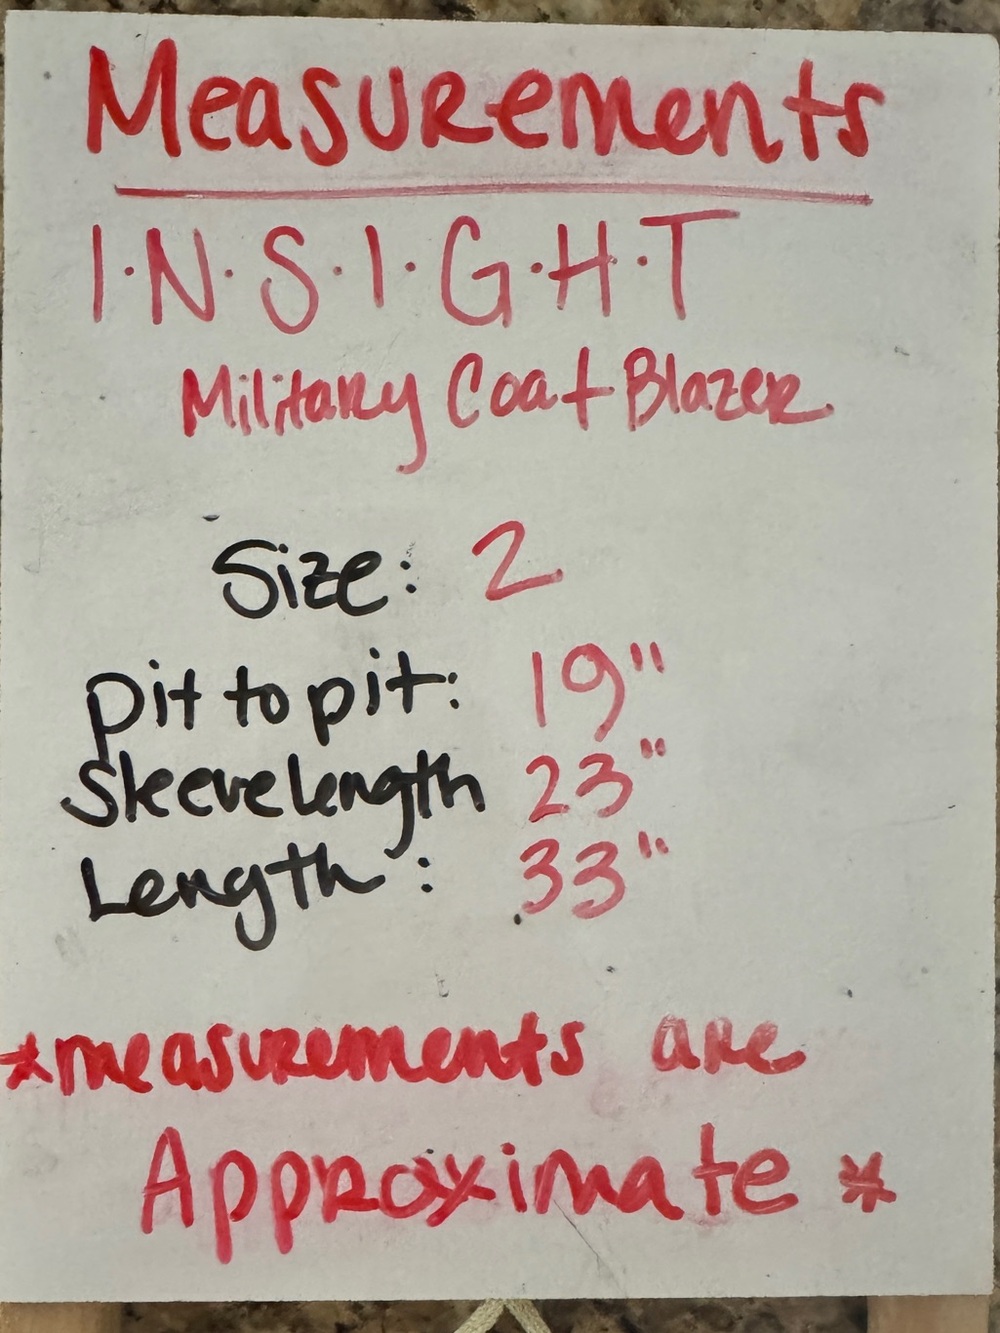 Measurements
I·N·S·I·G·H·T
Military Coat Blazer
Size: 2
pit to pit: 19"
Sleeve length 23"
Length: 33"
*measurements are
Approximate *